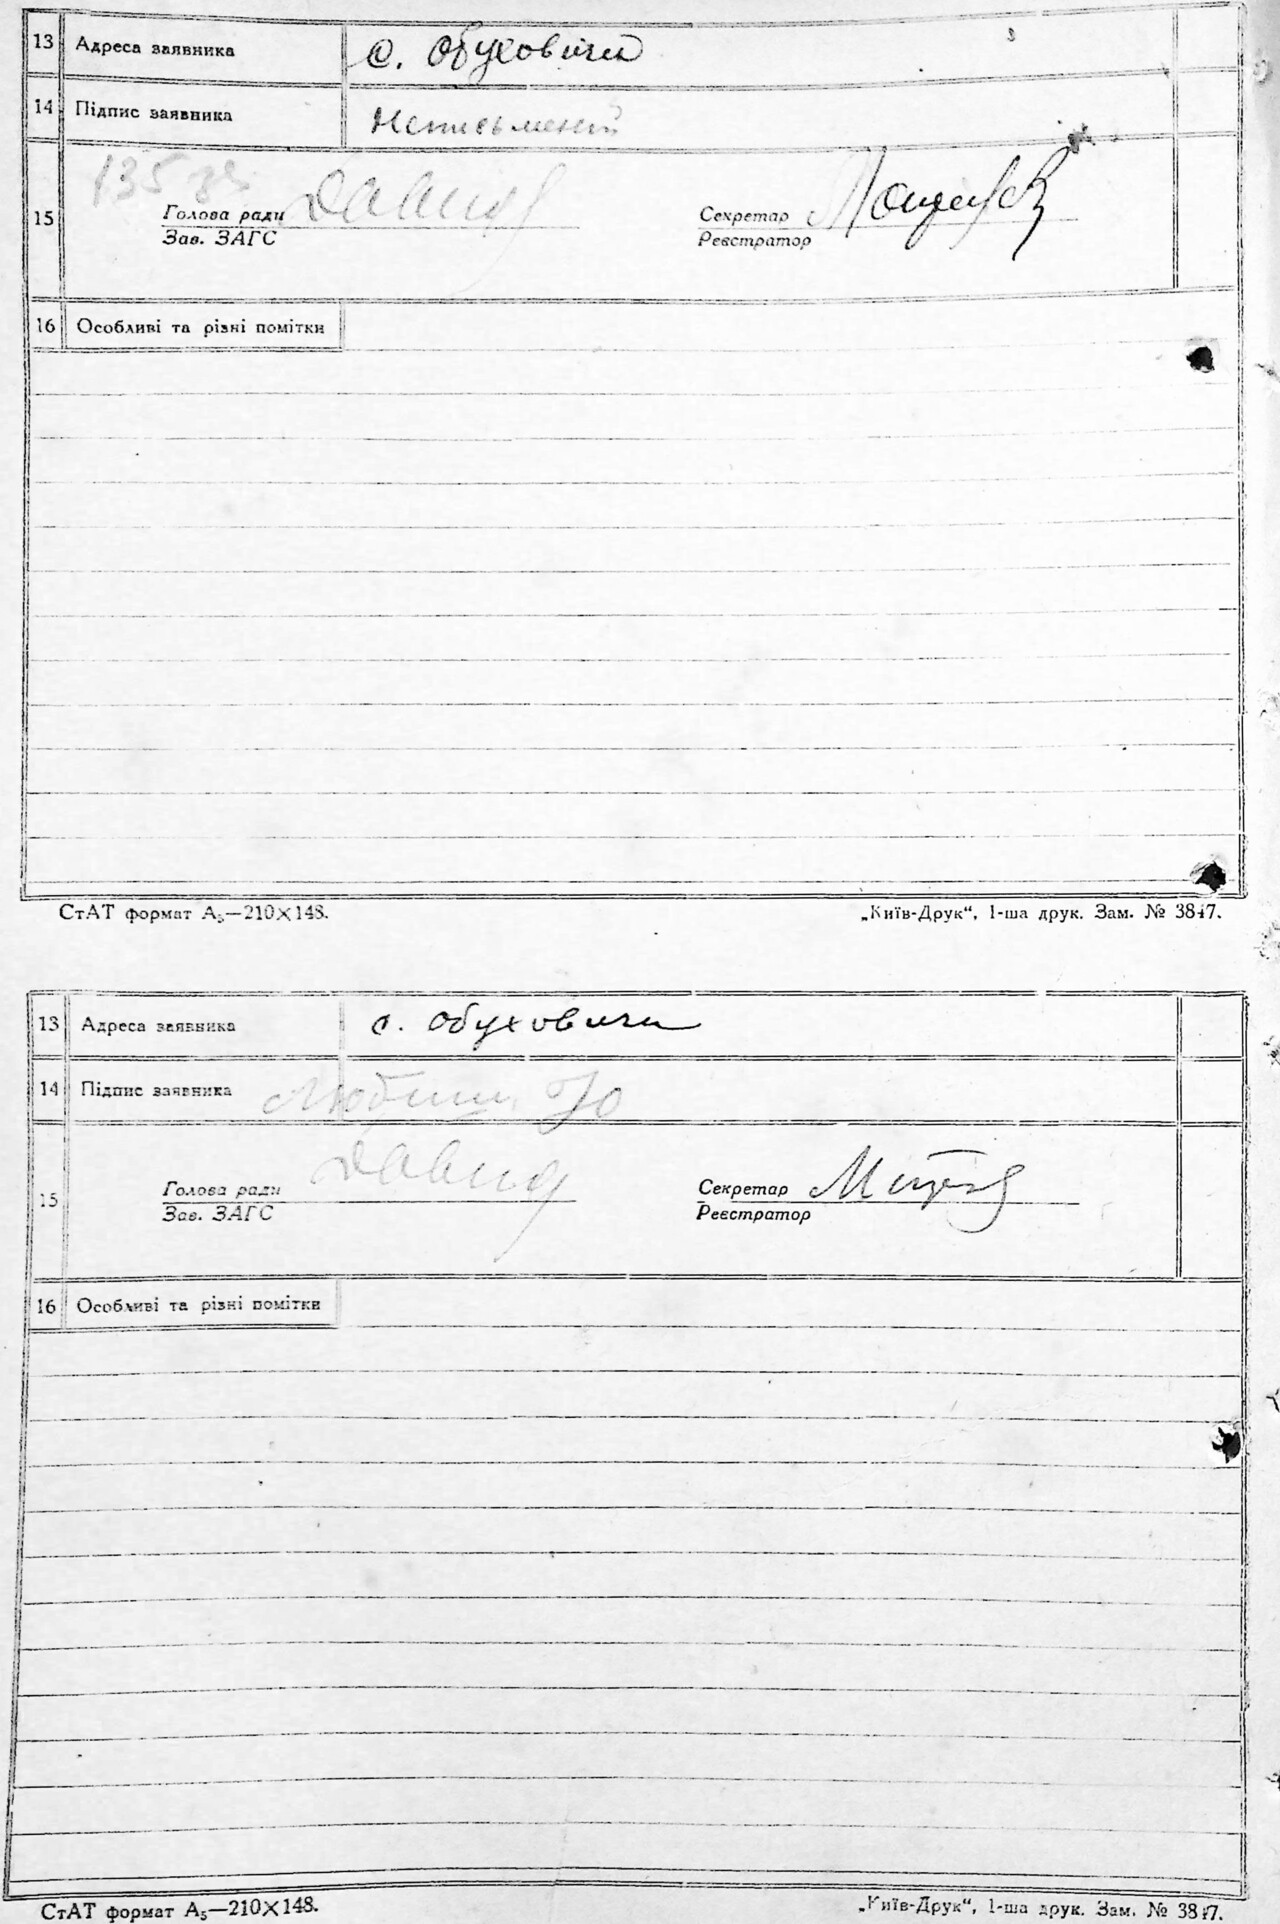 13 Адреса заявника с. Обуховичи
14 Підпис заявника Неписьмений
135
15 Голова ради Секретар
Зав. ЗАГС Реєстратор
16 Особливі та різні помітки
СтАТ формат А₅—210×148. „Київ-Друк“, 1-ша друк. Зам. № 3847.
13 Адреса заявника с. Обуховичи
14 Підпис заявника
15 Голова ради Секретар
Зав. ЗАГС Реєстратор
16 Особливі та різні помітки
СтАТ формат А₅—210×148. „Київ-Друк“, 1-ша друк. Зам. № 3847.